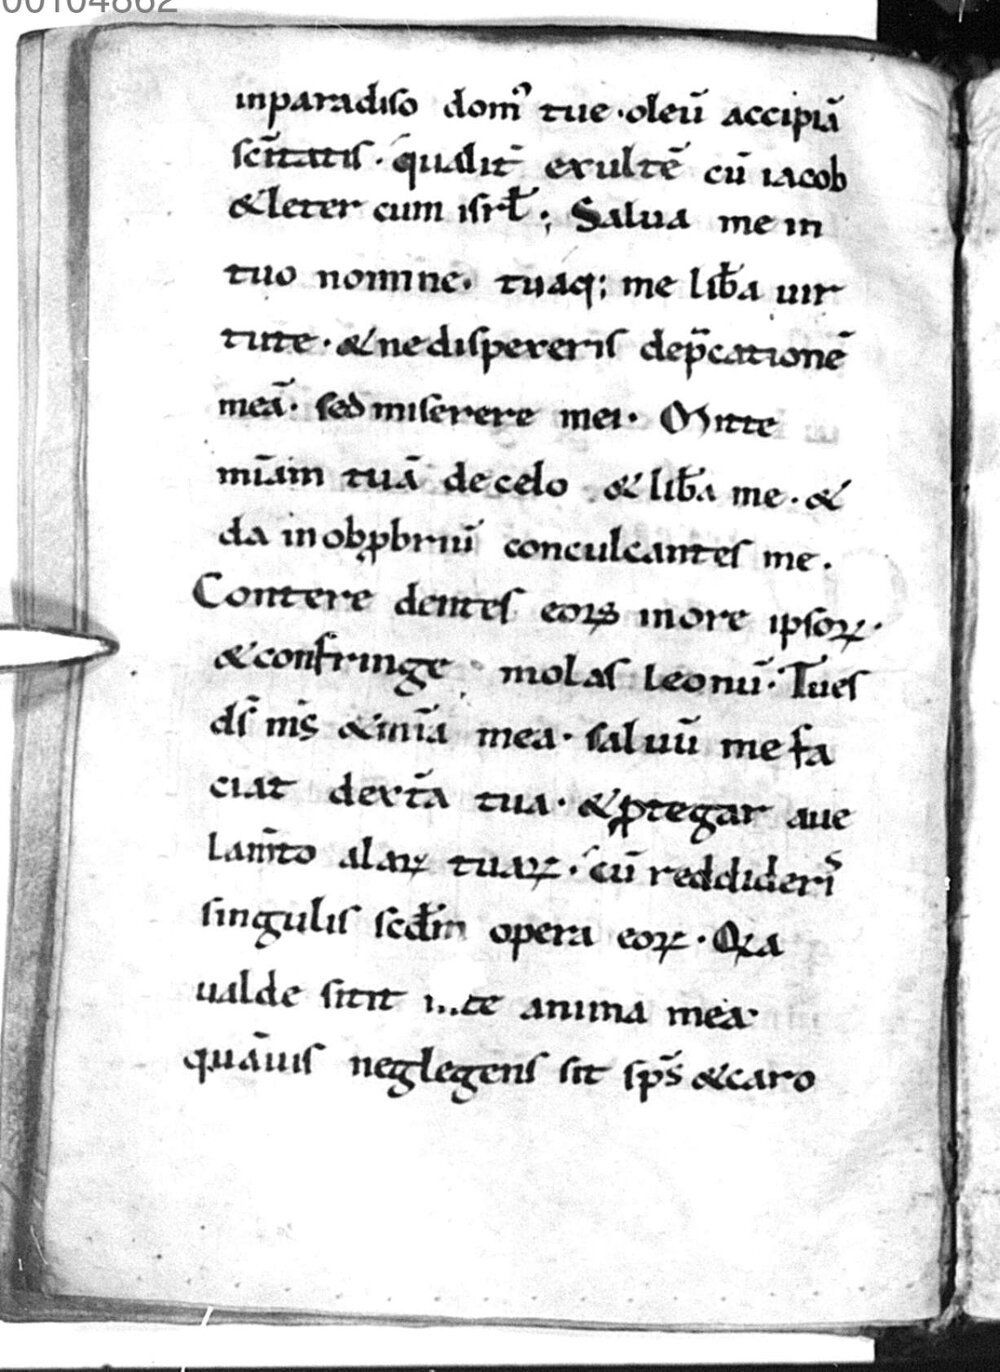 00104862
inparadiso domꝰ tue · oleū accipiā
scītatis · qualit̄ exultē cū iacob
&leter cum isrł ; Salua me in
tuo nomine · tuaq; me lib̄a uir
tute · & ne dispexeris dep̄cationē
meā · sed miserere mei · Mitte
mīam tuā de celo & lib̄a me · &
da in obꝓbriū conculcantes me ·
Contere dentes eoꝝ in ore ipsoꝝ ·
& confringe molas leonū · Tu es
ds̄ ms̄ & mīa mea · saluū me fa
ciat dext̄a tua · & ꝓtegar in aue
lam̄to alaꝝ tuaꝝ · cū reddideris
singulis scdm̄ opera eoꝝ · Q̄a
ualde sitit in te anima mea ·
quāuis neglegens sit sps̄ & caro